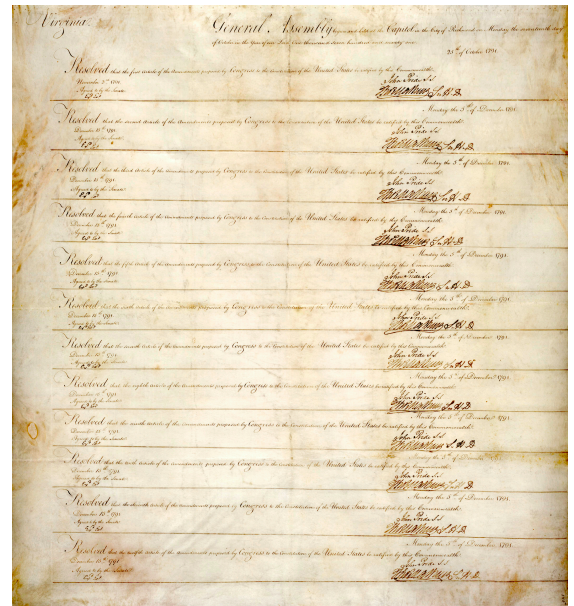 Virginia.
General Assembly begun and held at the Capitol in the City of Richmond on Monday the seventeenth day
of October in the Year of our Lord One thousand seven hundred and ninety one.
25th of October 1791.
Resolved that the first article of the Amendments proposed by Congress to the Constitution of the United States be ratified by this Commonwealth.
November 3d 1791. John Pride S.S
Agreed to by the Senate
S.H.D
Monday the 5th of December 1791.
Resolved that the second article of the Amendments proposed by Congress to the Constitution of the United States be ratified by this Commonwealth.
December 15th 1791. John Pride S.S
Agreed to by the Senate
S.H.D
Monday the 5th of December 1791.
Resolved that the third article of the Amendments proposed by Congress to the Constitution of the United States be ratified by this Commonwealth.
December 15th 1791. John Pride S.S
Agreed to by the Senate
S.H.D
Monday the 5th of December 1791.
Resolved that the fourth article of the Amendments proposed by Congress to the Constitution of the United States be ratified by this Commonwealth.
December 15th 1791. John Pride S.S
Agreed to by the Senate
S.H.D
Monday the 5th of December 1791.
Resolved that the fifth article of the Amendments proposed by Congress to the Constitution of the United States be ratified by this Commonwealth.
December 15th 1791. John Pride S.S
Agreed to by the Senate
S.H.D
Monday the 5th of December 1791.
Resolved that the sixth article of the Amendments proposed by Congress to the Constitution of the United States be ratified by this Commonwealth.
December 15th 1791. John Pride S.S
Agreed to by the Senate
S.H.D
Monday the 5th of December 1791.
Resolved that the seventh article of the Amendments proposed by Congress to the Constitution of the United States be ratified by this Commonwealth.
December 15th 1791. John Pride S.S
Agreed to by the Senate
S.H.D
Monday the 5th of December 1791.
Resolved that the eighth article of the Amendments proposed by Congress to the Constitution of the United States be ratified by this Commonwealth.
December 15th 1791. John Pride S.S
Agreed to by the Senate
S.H.D
Monday the 5th of December 1791.
Resolved that the ninth article of the Amendments proposed by Congress to the Constitution of the United States be ratified by this Commonwealth.
December 15th 1791. John Pride S.S
Agreed to by the Senate
S.H.D
Monday the 5th of December 1791.
Resolved that the tenth article of the Amendments proposed by Congress to the Constitution of the United States be ratified by this Commonwealth.
December 15th 1791. John Pride S.S
Agreed to by the Senate
S.H.D
Monday the 5th of December 1791.
Resolved that the eleventh article of the Amendments proposed by Congress to the Constitution of the United States be ratified by this Commonwealth.
December 15th 1791. John Pride S.S
Agreed to by the Senate
S.H.D
Monday the 5th of December 1791.
Resolved that the twelfth article of the Amendments proposed by Congress to the Constitution of the United States be ratified by this Commonwealth.
December 15th 1791. John Pride S.S
Agreed to by the Senate
S.H.D